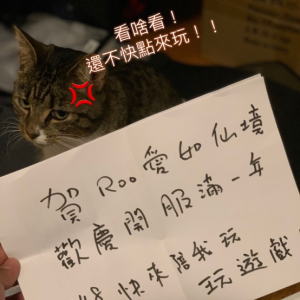 看啥看！
還不快點來玩！！
賀Roo愛如仙境
歡慶開服滿一年
快來陪我玩
玩遊戲